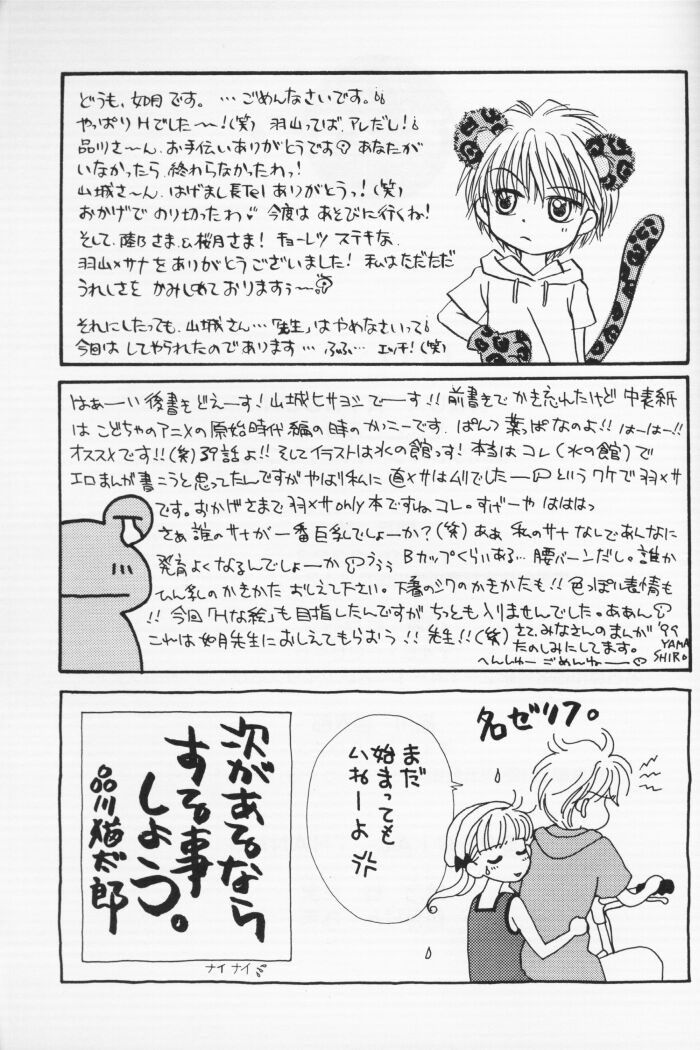 どうも、如月です。…ごめんなさいです。
やっぱりHでした～!(笑) 羽山ってば、アレだし!
品川さ～ん、お手伝いありがとうです あなたが
いなかったら、終わらなかったわっ!
山城さ～ん、はげまし長Telありがとうっ!(笑)
おかげで のり切ったわ 今度は あそびに行くね!
そして、さま&桜月さま! キョーレツ ステキな
羽山×サナをありがとうございました! 私はただただ
うれしさを かみしめておりますぅ～
それにしたっても、山城さん…「先生」はやめなさいって
今回は してやられたのであります… ふふふ… エッチ!(笑)
はぁーい 後書をどえーす! 山城ヒサヨシでーす!! 前書きでかき忘れたけど 中表紙
は こどちゃのアニメの原始時代編の時のかっこーです。ぱんつ葉っぱなのよ!! はーはー!!
オススメです!!(笑) 39話よ!! そしてイラストは水の館っす! 本当はコレ(水の館)で
エロまんが書こうと思ってたんですが やはり私に 直×サはムリでしたー というワケで羽×サ
です。おかげさまで 羽×サonly本ですねコレ。すげーや はははっ
さぁ 誰のサナが一番巨乳でしょーか?(笑) あぁ 私のサナ なしであんなに
発育よくなるんでしょーか うぅぅ Bカップくらいある… 腰バーンだし。誰か
ひん乳のかきかた おしえて下さい。下着のシワのかきかたも!! 色っぽい表情も
!! 今回「Hな絵」も目指したんですが ちっとも入りませんでした。ああん
これは如月先生におしえてもらおう!! 先生!!(笑) さて、みなさんのまんが
たのしみにしてます。
へんしゅー ごめんねー
'99
YAMA
SHIRO
名ゼリフ。
まだ
始まっても
いねーよ
次があるなら
する事
しよう。
品川猫太郎
ナイナイ